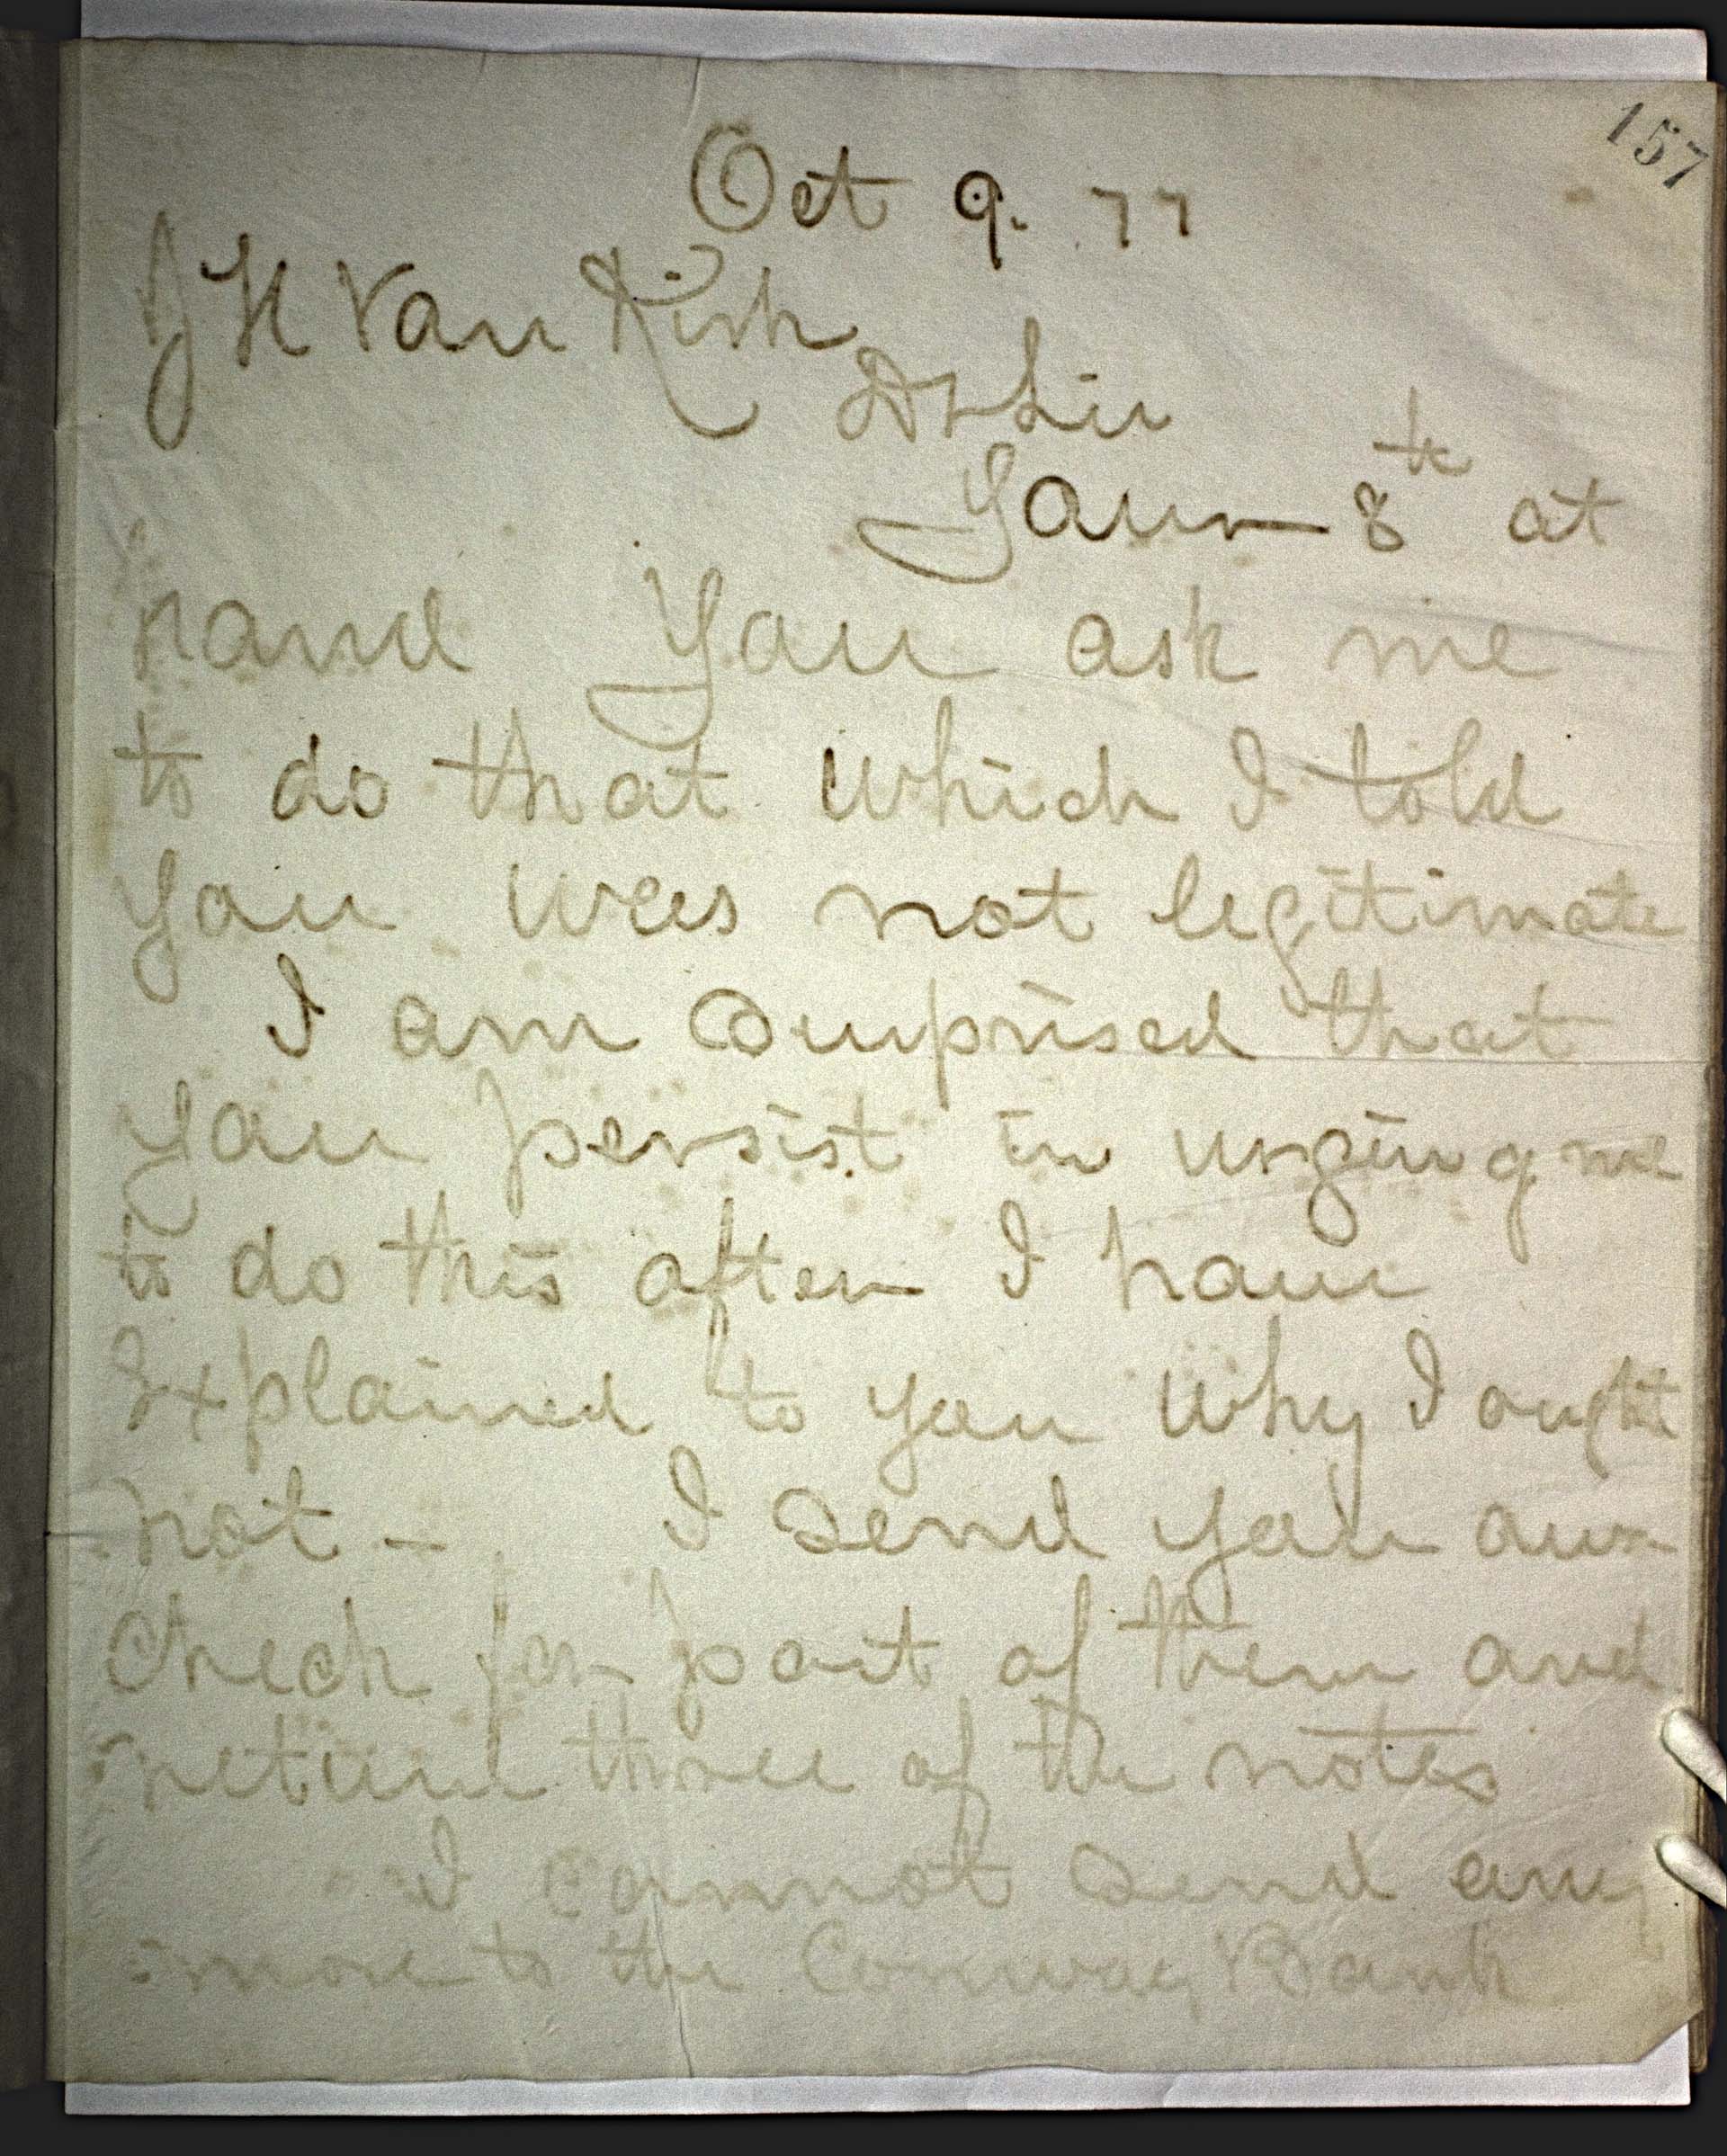 157
Oct 9. 77
J H Van Kirk
Dr Sir
Your 8th at
hand You ask me
to do that which I told
you was not legitimate
I am surprised that
you persist in urging me
to do this after I have
Explained to you why I ought
not - I send you our
Check for part of them and
return three of the notes
I cannot send any
more to the Conway Bank